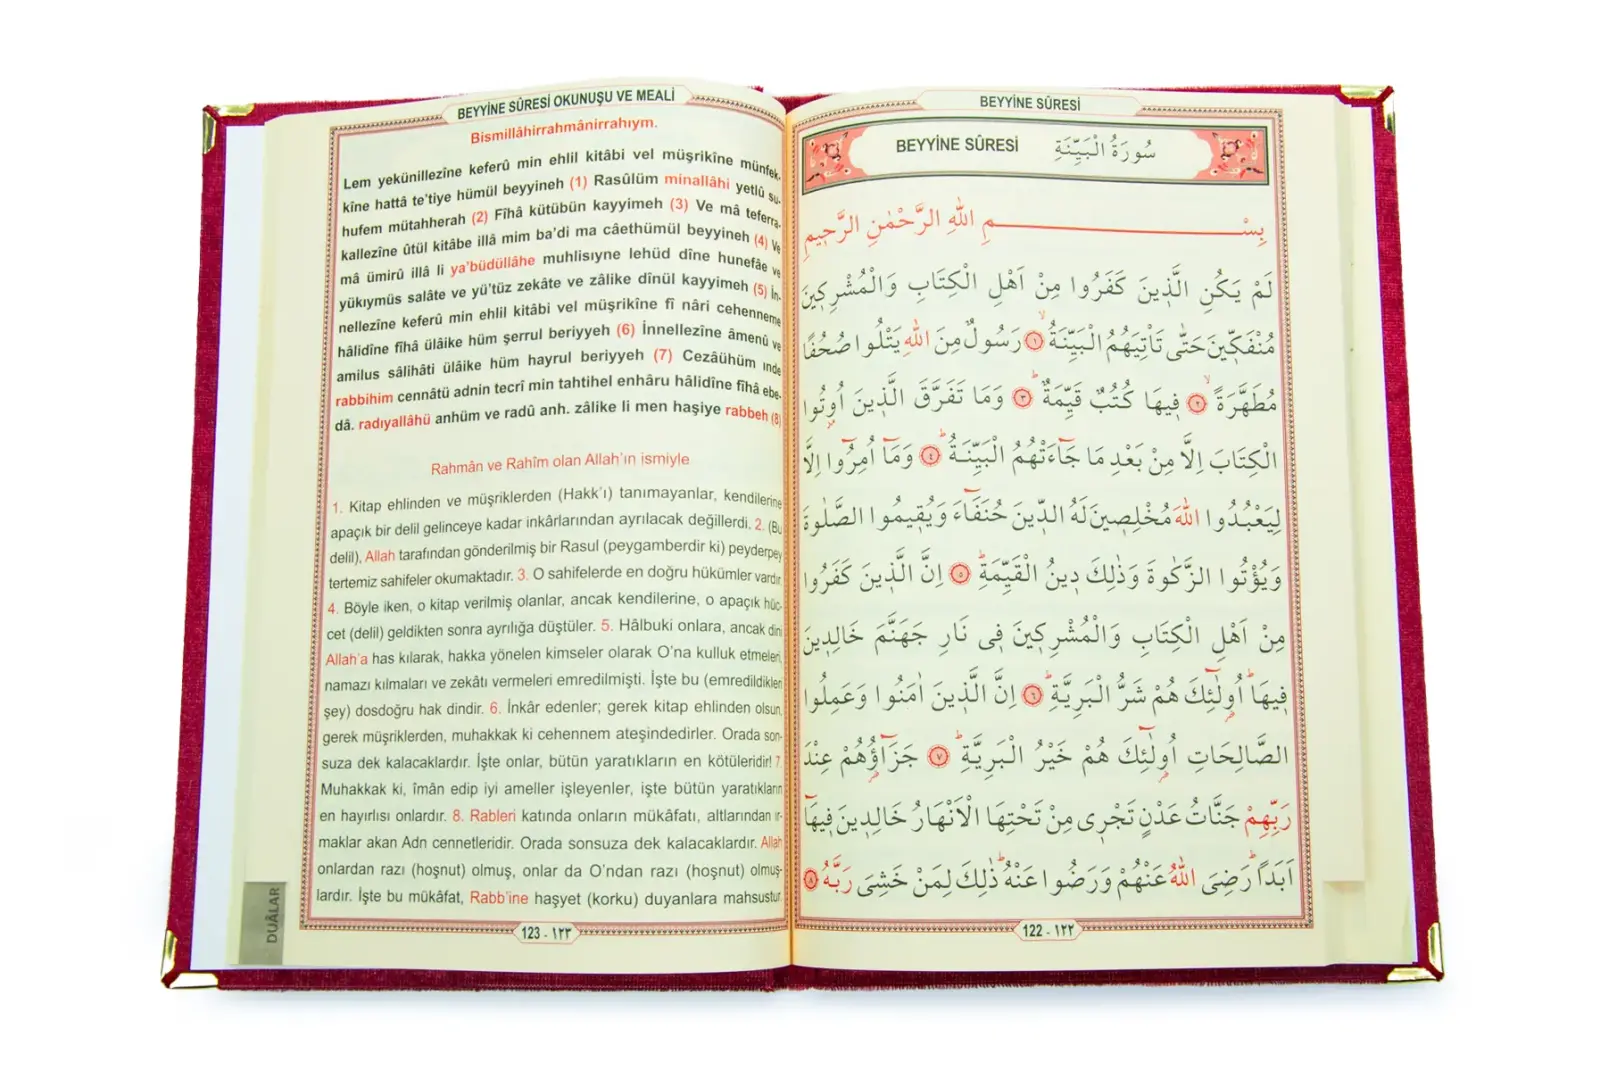 BEYYİNE SÛRESİ
BEYYİNE SÛRESİ سُورَةُ الْبَيِّنَةِ
بِسْمِ اللهِ الرَّحْمٰنِ الرَّحِيمِ
لَمْ يَكُنِ الَّذِينَ كَفَرُوا مِنْ اَهْلِ الْكِتَابِ وَالْمُشْرِكِينَ
مُنْفَكِّينَ حَتّٰى تَأْتِيَهُمُ الْبَيِّنَةُ ﴿١﴾ رَسُولٌ مِنَ اللهِ يَتْلُوا صُحُفًا
مُطَهَّرَةً ﴿٢﴾ فِيهَا كُتُبٌ قَيِّمَةٌ ﴿٣﴾ وَمَا تَفَرَّقَ الَّذِينَ اُوتُوا
الْكِتَابَ اِلَّا مِنْ بَعْدِ مَا جَٓاءَتْهُمُ الْبَيِّنَةُ ﴿٤﴾ وَمَٓا اُمِرُٓوا اِلَّا
لِيَعْبُدُوا اللهَ مُخْلِصِينَ لَهُ الدِّينَ حُنَفَٓاءَ وَيُقِيمُوا الصَّلٰوةَ
وَيُؤْتُوا الزَّكٰوةَ وَذٰلِكَ دِينُ الْقَيِّمَةِ ﴿٥﴾ اِنَّ الَّذِينَ كَفَرُوا
مِنْ اَهْلِ الْكِتَابِ وَالْمُشْرِكِينَ فِي نَارِ جَهَنَّمَ خَالِدِينَ
فِيهَا اُولٰٓئِكَ هُمْ شَرُّ الْبَرِيَّةِ ﴿٦﴾ اِنَّ الَّذِينَ اٰمَنُوا وَعَمِلُوا
الصَّالِحَاتِ اُولٰٓئِكَ هُمْ خَيْرُ الْبَرِيَّةِ ﴿٧﴾ جَزَٓاؤُهُمْ عِنْدَ
رَبِّهِمْ جَنَّاتُ عَدْنٍ تَجْرِي مِنْ تَحْتِهَا الْاَنْهَارُ خَالِدِينَ فِيهَٓا
اَبَدًا رَضِيَ اللهُ عَنْهُمْ وَرَضُوا عَنْهُ ذٰلِكَ لِمَنْ خَشِيَ رَبَّهُ ﴿٨﴾
122 - ١٢٢
BEYYİNE SÛRESİ OKUNUŞU VE MEALİ
Bismillâhirrahmânirrahıym.
Lem yekünillezîne keferû min ehlil kitâbi vel müşrikîne münfek-
kîne hattâ te'tiye hümül beyyineh (1) Rasûlüm minallâhi yetlû su-
hufem mütahherah (2) Fîhâ kütübün kayyimeh (3) Ve mâ teferra-
kallezîne ûtül kitâbe illâ mim ba'di ma câethümül beyyineh (4) Ve
mâ ümirû illâ li ya'büdüllâhe muhlisıyne lehüd dîne hunefâe ve
yükıymüs salâte ve yü'tüz zekâte ve zâlike dînül kayyimeh (5) İn-
nellezîne keferû min ehlil kitâbi vel müşrikîne fî nâri cehenneme
hâlidîne fîhâ ülâike hüm şerrul beriyyeh (6) İnnellezîne âmenû ve
amilus sâlihâti ülâike hüm hayrul beriyyeh (7) Cezâühüm ınde
rabbihim cennâtü adnin tecrî min tahtihel enhâru hâlidîne fîhâ ebe-
dâ. radıyallâhü anhüm ve radû anh. zâlike li men haşiye rabbeh (8)
Rahmân ve Rahîm olan Allah'ın ismiyle
1. Kitap ehlinden ve müşriklerden (Hakk'ı) tanımayanlar, kendilerine
apaçık bir delil gelinceye kadar inkârlarından ayrılacak değillerdi. 2. (Bu
delil), Allah tarafından gönderilmiş bir Rasul (peygamberdir ki) peyderpey
tertemiz sahifeler okumaktadır. 3. O sahifelerde en doğru hükümler vardır.
4. Böyle iken, o kitap verilmiş olanlar, ancak kendilerine, o apaçık hüc-
cet (delil) geldikten sonra ayrılığa düştüler. 5. Hâlbuki onlara, ancak dini
Allah'a has kılarak, hakka yönelen kimseler olarak O'na kulluk etmeleri,
namazı kılmaları ve zekâtı vermeleri emredilmişti. İşte bu (emredildikleri
şey) dosdoğru hak dindir. 6. İnkâr edenler; gerek kitap ehlinden olsun,
gerek müşriklerden, muhakkak ki cehennem ateşindedirler. Orada son-
suza dek kalacaklardır. İşte onlar, bütün yaratıkların en kötüleridir! 7.
Muhakkak ki, îmân edip iyi ameller işleyenler, işte bütün yaratıkların
en hayırlısı onlardır. 8. Rableri katında onların mükâfatı, altlarından ır-
maklar akan Adn cennetleridir. Orada sonsuza dek kalacaklardır. Allah
onlardan razı (hoşnut) olmuş, onlar da O'ndan razı (hoşnut) olmuş-
lardır. İşte bu mükâfat, Rabb'ine haşyet (korku) duyanlara mahsustur.
123 - ١٢٣
DUÂLAR